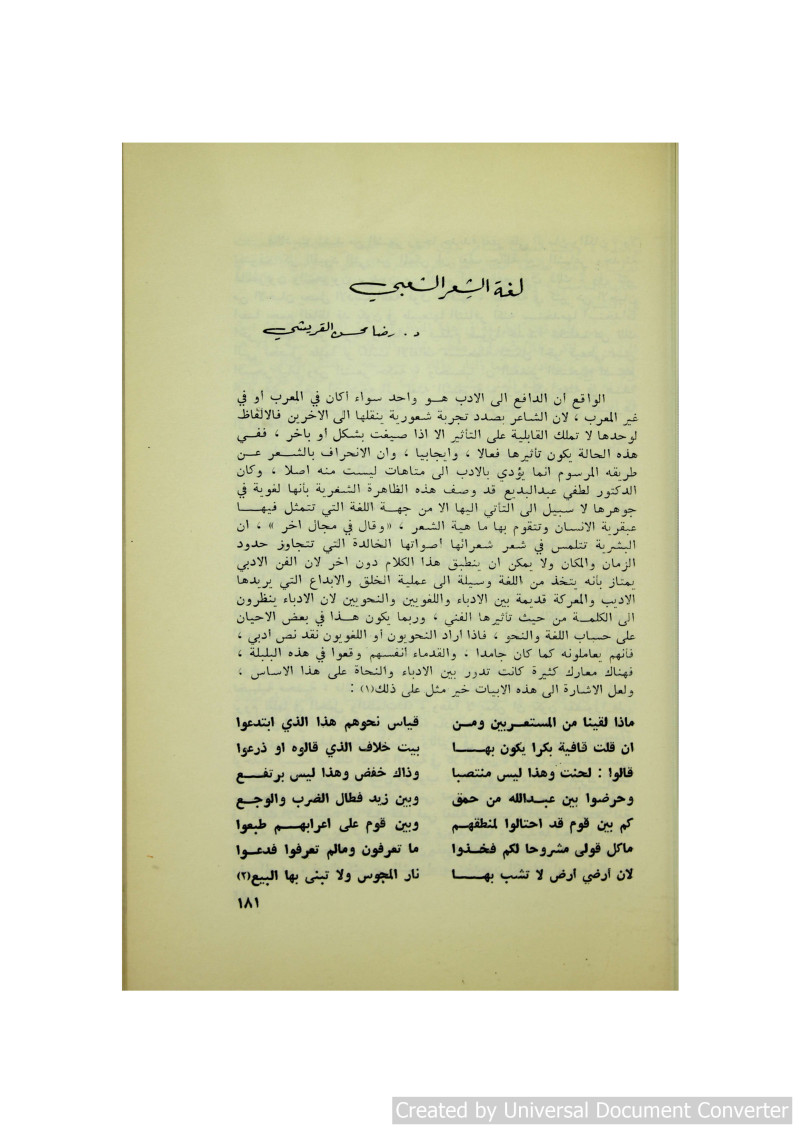 لغة الشعر الشعبي
د. رضا محسن القريشي
الواقع أن الدافع الى الادب هو واحد سواء أكان في المعرب أو في
غير المعرب ، لان الشاعر بصدد تجربة شعورية ينقلها الى الاخرين فالالفاظ
لوحدها لا تملك القابلية على التأثير الا اذا صيغت بشكل أو بآخر ، ففي
هذه الحالة يكون تأثيرها فعالا ، وايجابيا ، وان الانحراف بالشعر عن
طريقه المرسوم انما يؤدي بالادب الى متاهات ليست منه اصلا ، وكان
الدكتور لطفي عبدالبديع قد وصف هذه الظاهرة الشعرية بأنها لغوية في
جوهرها لا سبيل الى التأتي اليها الا من جهة اللغة التي تتمثل فيها
عبقرية الانسان وتتقوم بها ما هية الشعر ، «وقال في مجال اخر » ، ان
البشرية تتلمس في شعر شعرائها اصواتها الخالدة التي تتجاوز حدود
الزمان والمكان ولا يمكن ان ينطبق هذا الكلام دون اخر لان الفن الادبي
يمتاز بأنه يتخذ من اللغة وسيلة الى عملية الخلق والابداع التي يريدها
الاديب والمعركة قديمة بين الادباء واللغويين والنحويين لان الادباء ينظرون
الى الكلمة من حيث تأثيرها الفني ، وربما يكون هذا في بعض الاحيان
على حساب اللغة والنحو ، فاذا اراد النحويون أو اللغويون نقد نص ادبي ،
فأنهم يعاملونه كما كان جامدا ، والقدماء أنفسهم وقعوا في هذه البلبلة ،
فهناك معارك كثيرة كانت تدور بين الادباء والنحاة على هذا الاساس ،
ولعل الاشارة الى هذه الابيات خير مثل على ذلك(١) :
ماذا لقينا من المستعربين ومن قياس نحوهم هذا الذي ابتدعوا
ان قلت قافية بكرا يكون بها بيت خلاف الذي قالوه او ذرعوا
قالوا : لحنت وهذا ليس منتصبا وذاك خفض وهذا ليس يرتفع
وحرضوا بين عبدالله من حمق وبين زيد فطال الضرب والوجع
كم بين قوم قد احتالوا لمنطقهم وبين قوم على اعرابهم طبعوا
ماكل قولي مشروحا لكم فخذوا ما تعرفون ومالم تعرفوا فدعوا
لان أرضي أرض لا تشب بها نار المجوس ولا تبنى بها البيع(٢)
١٨١
Created by Universal Document Converter